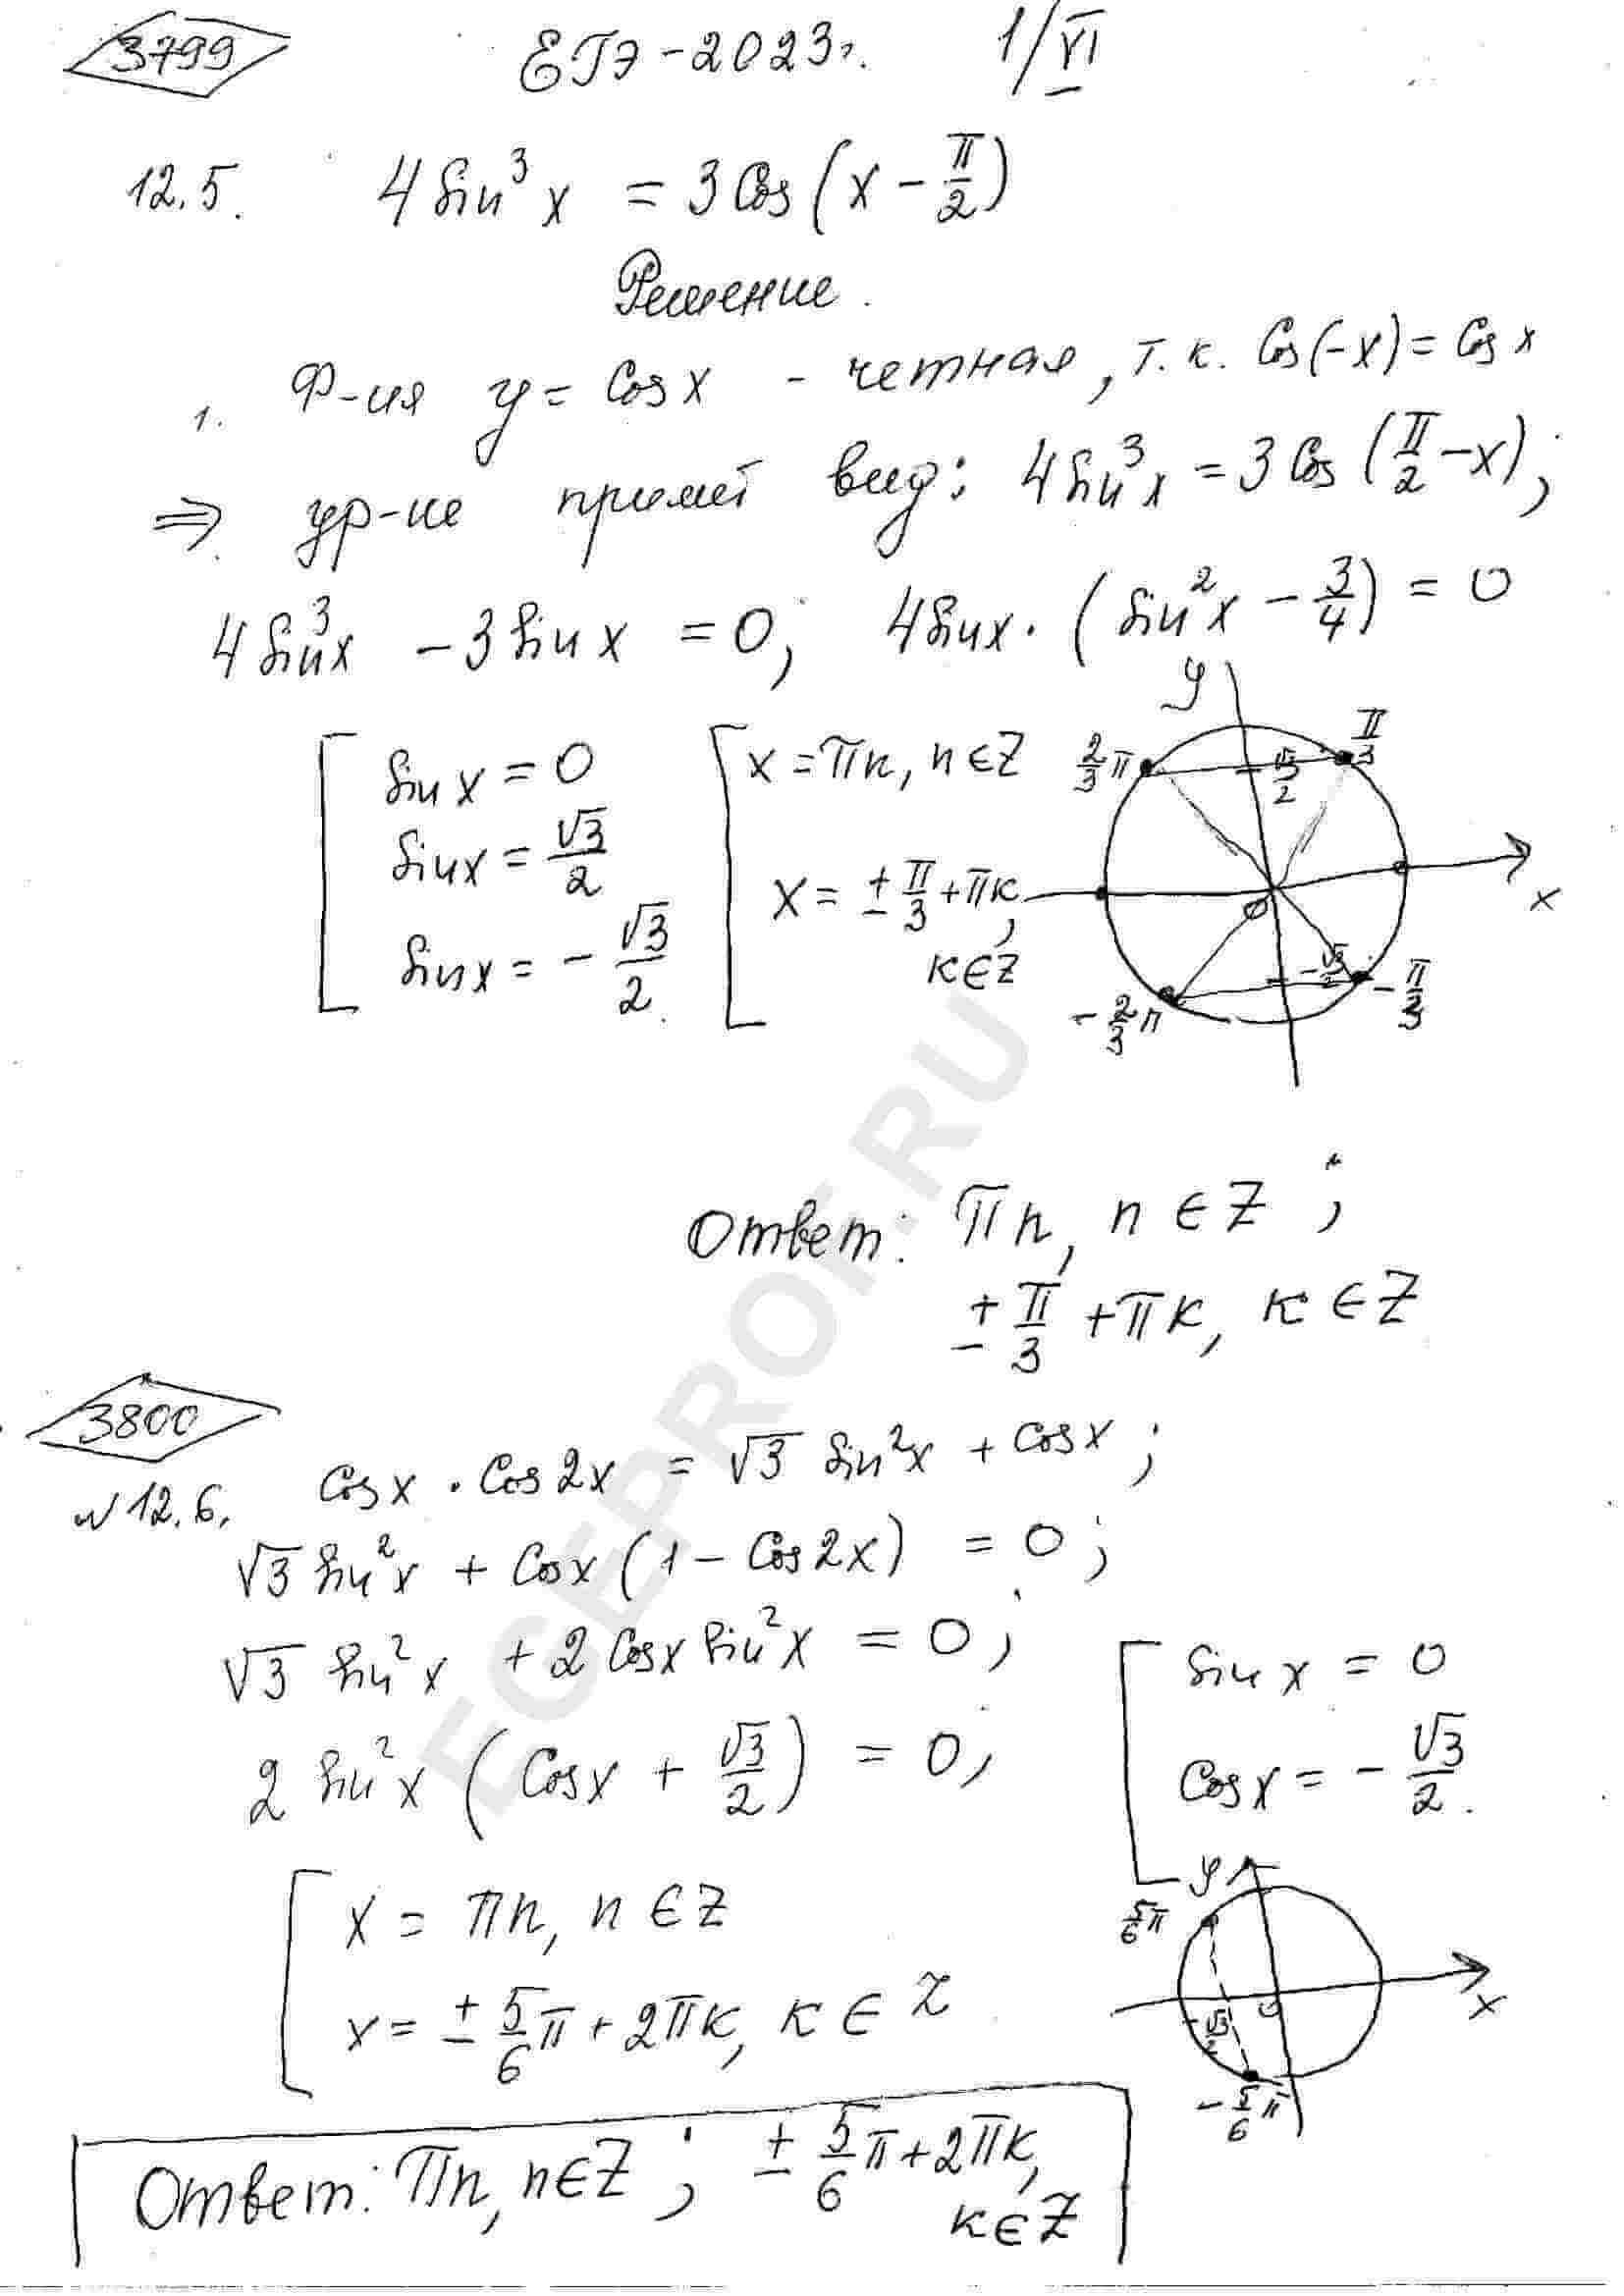 3799 ЕГЭ - 2023г. 1/VI
12.5. 4 Sin³x = 3 Cos(x - π/2)
Решение.
1. Ф-ия y = Cos x - четная, т.к. Cos(-x) = Cos x
⇒ ур-ие примет вид: 4Sin³x = 3 Cos (π/2 - x);
4Sin³x - 3 Sin x = 0; 4Sin x · (Sin²x - 3/4) = 0
Sin x = 0
Sin x = √3/2
Sin x = - √3/2.
x = πn, n ∈ Z
x = ± π/3 + πк,
к ∈ Z
y
2/3 π
π/3
√3/2
0
x
- √3/2
- 2/3 π
- π/3
Ответ: πn, n ∈ Z;
± π/3 + πк, к ∈ Z
3800
N 12.6. Cos x · Cos 2x = √3 Sin²x + Cos x;
√3 Sin²x + Cos x (1 - Cos 2x) = 0;
√3 Sin²x + 2 Cos x Sin²x = 0;
2 Sin²x (Cos x + √3/2) = 0;
Sin x = 0
Cos x = - √3/2.
x = πn, n ∈ Z
x = ± 5/6 π + 2πк, к ∈ Z
y
5/6 π
0
x
- √3/2
- 5/6 π
Ответ: πn, n ∈ Z; ± 5/6 π + 2πк,
к ∈ Z
EGEPROF.RU